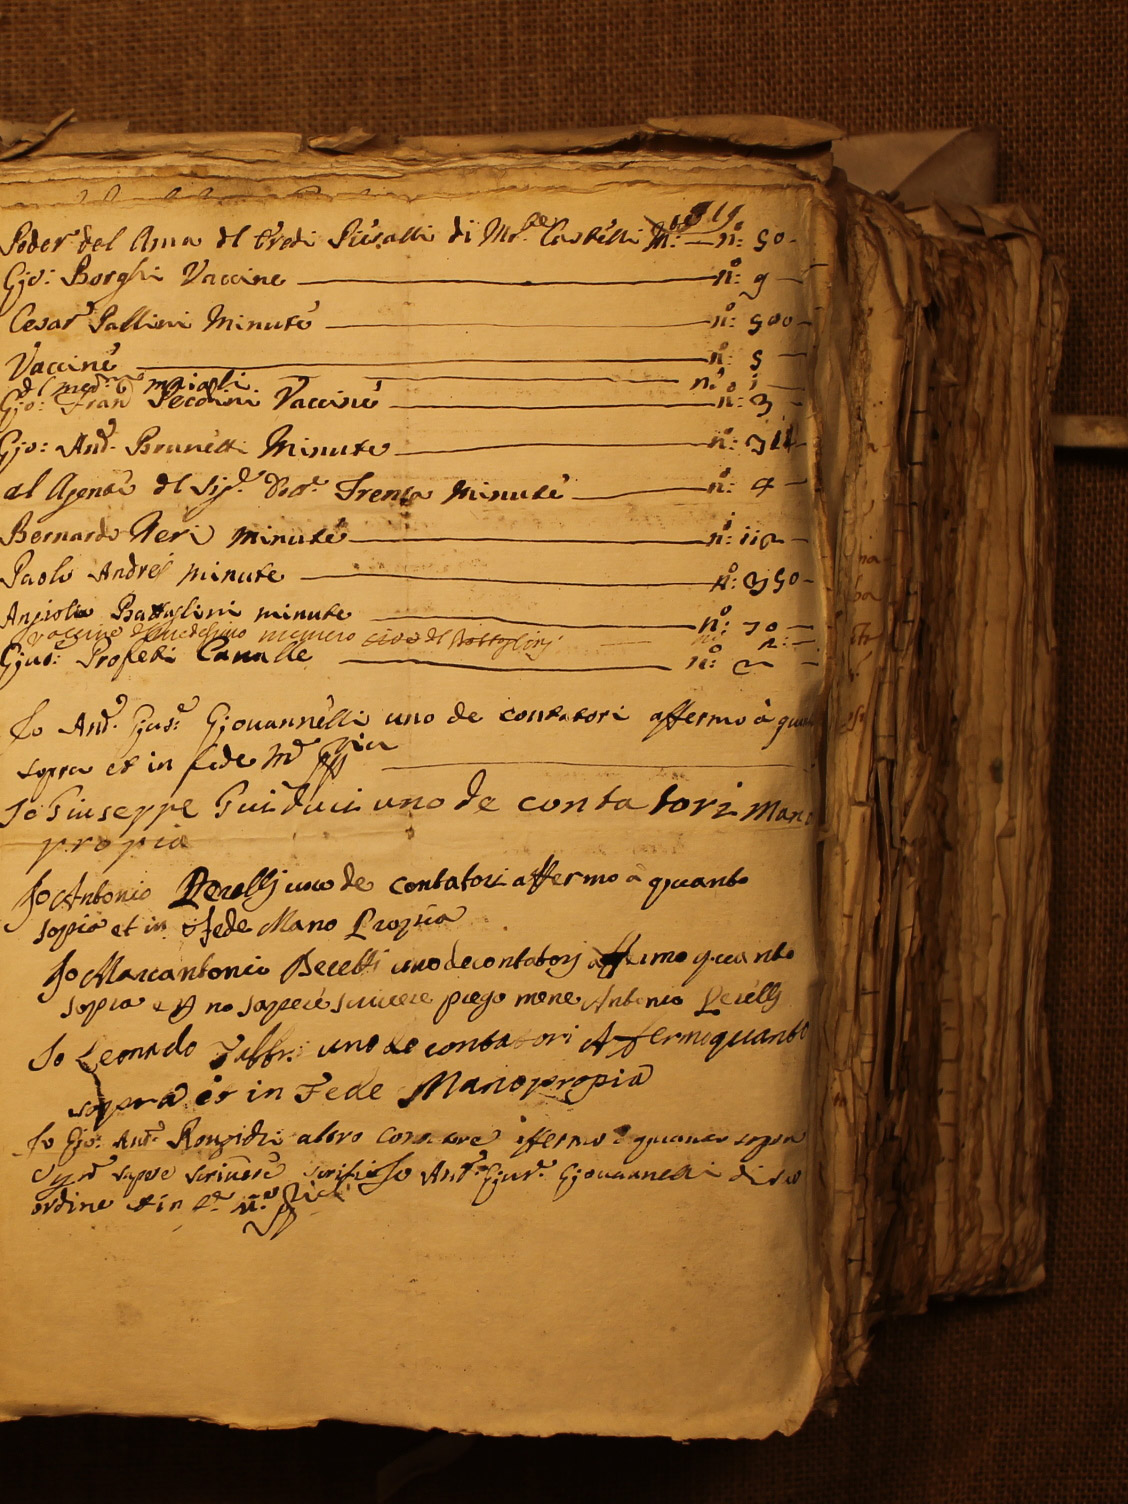 Poder del Ama dl Eredi di Castelli n:º 50
Gio: Borghi Vaccine n:º 9
Cesar Pallini Minute n:º 500
Vaccine n:º 5
n:º 1
Gio: Fran Pecorini Vaccine n:º 3
Gio: And. Brunetti Minute n:º 311
al Agente dl Sig.r Trenta Minute n:º 4
Bernardo Neri minute n:º 112
Paolo Andrej minute n:º 350
Angiolo Battaglini minute n:º 70
vaccine numero n: 2
Gius: Profeti Cavalle n:º 2
Io And. Gius: Giovannelli uno de contatori affermo à
sopra et in fede M
Io Giuseppe uno de contatori Mano
propia
Io Antonio Perellj uno de contatori affermo à quanto
sopra et in fede Mano Propia
Io Marcantonio uno de contatorj affermo quanto
sopra no sapere scrivere prego mene Antonio Perellj
Io Leonado uno de contatori Affermo quanto
sopra et in Fede Mano propia
Io Gio: Ant. altro affermo quanto sopra
sapere scrivere Io Ant. Gius. Giovannelli di suo
ordine et in